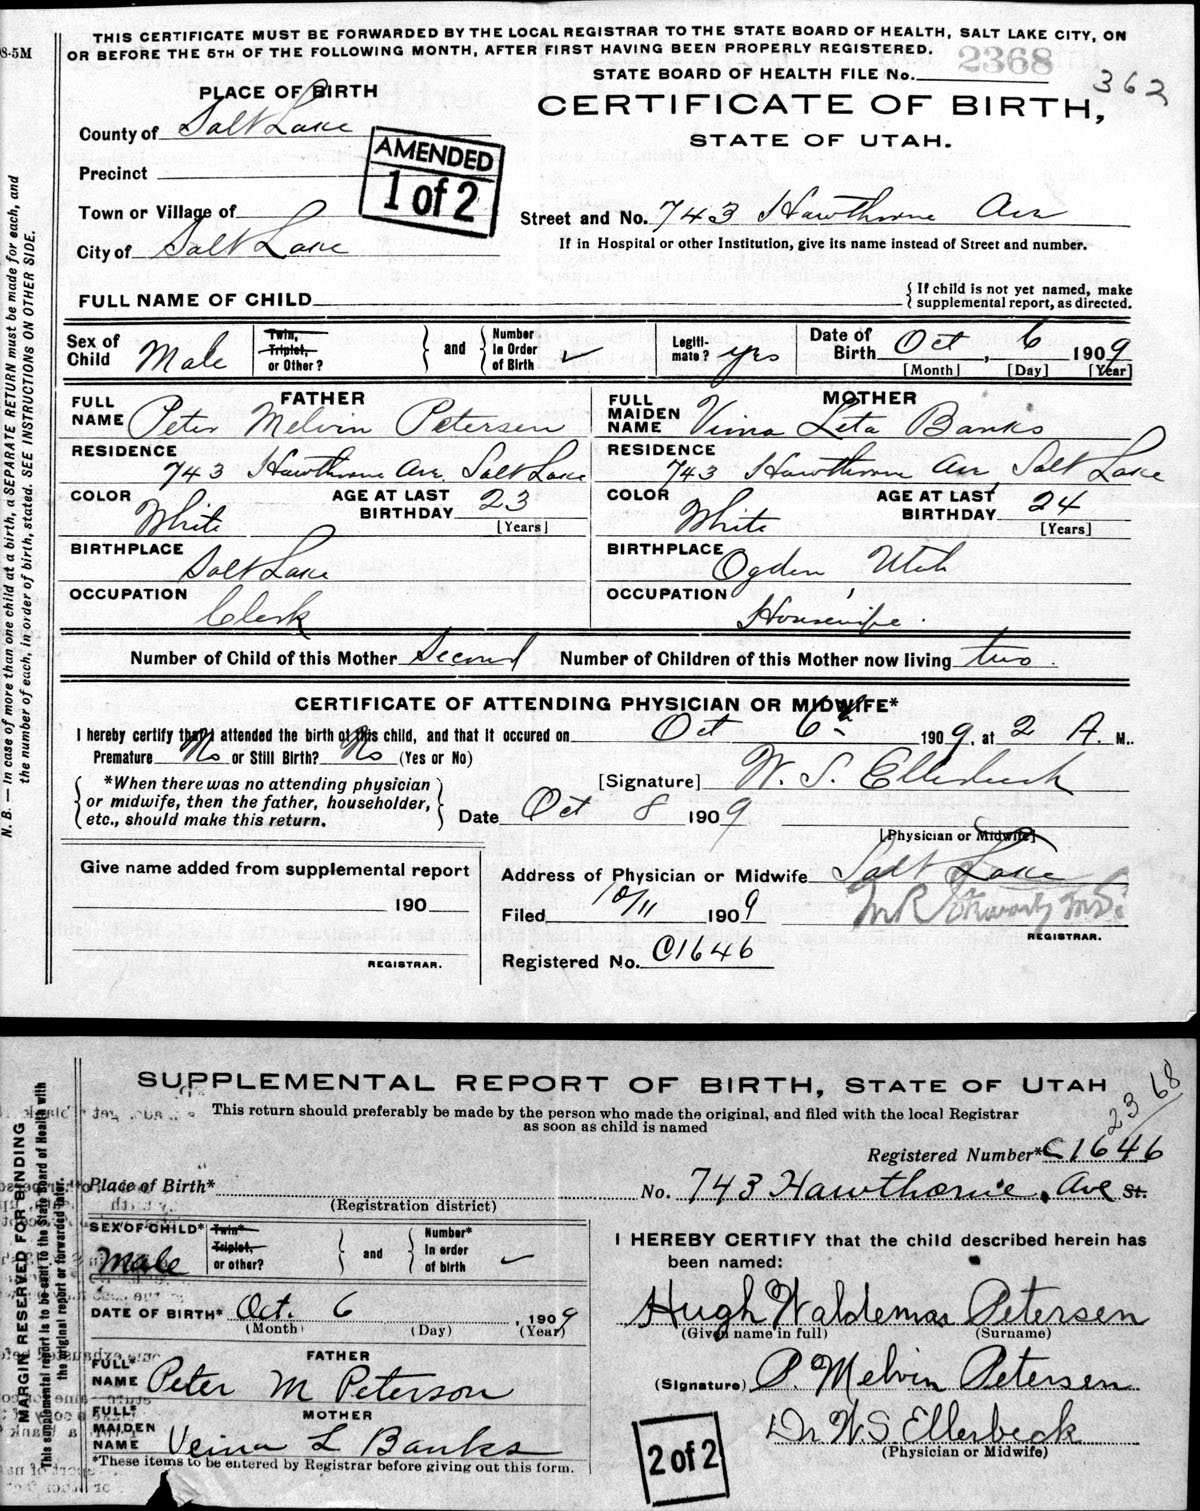 THIS CERTIFICATE MUST BE FORWARDED BY THE LOCAL REGISTRAR TO THE STATE BOARD OF HEALTH, SALT LAKE CITY, ON
8-5M
OR BEFORE THE 5TH OF THE FOLLOWING MONTH, AFTER FIRST HAVING BEEN PROPERLY REGISTERED.
STATE BOARD OF HEALTH FILE No. 2368
362
PLACE OF BIRTH
CERTIFICATE OF BIRTH,
STATE OF UTAH.
County of Salt Lake
AMENDED
1 of 2
Precinct
Town or Village of
Street and No. 743 Hawthorne Ave
City of Salt Lake
If in Hospital or other Institution, give its name instead of Street and number.
FULL NAME OF CHILD
{ If child is not yet named, make
supplemental report, as directed.
Sex of Child Male
Twin, Triplet, or Other?
and
Number In Order of Birth ✓
Legitimate? yes
Date of Birth Oct, 6 1909
[Month] [Day] [Year]
FATHER
FULL NAME Peter Melvin Petersen
MOTHER
FULL MAIDEN NAME Leta Banks
RESIDENCE 743 Hawthorne Ave. Salt Lake
RESIDENCE 743 Hawthorne Ave Salt Lake
COLOR White
AGE AT LAST BIRTHDAY 23
[Years]
COLOR White
AGE AT LAST BIRTHDAY 24
[Years]
BIRTHPLACE Salt Lake
BIRTHPLACE Ogden Utah
OCCUPATION Clerk
OCCUPATION Housewife.
Number of Child of this Mother Second Number of Children of this Mother now living two.
CERTIFICATE OF ATTENDING PHYSICIAN OR MIDWIFE*
I hereby certify that I attended the birth of this child, and that it occured on Oct 6th 1909, at 2 A. M..
Premature No or Still Birth? No (Yes or No)
[Signature] W. S. Ellerbeck
{ *When there was no attending physician
or midwife, then the father, householder,
etc., should make this return. }
Date Oct 8 1909
[Physician or Midwife]
Give name added from supplemental report
190
REGISTRAR.
Address of Physician or Midwife Salt Lake
Filed 10/11 1909
REGISTRAR.
Registered No. C1646
N. B. — In case of more than one child at a birth, a SEPARATE RETURN must be made for each, and
the number of each, in order of birth, stated. SEE INSTRUCTIONS ON OTHER SIDE.
SUPPLEMENTAL REPORT OF BIRTH, STATE OF UTAH
This return should preferably be made by the person who made the original, and filed with the local Registrar
as soon as child is named
2368
Registered Number* C1646
Place of Birth* No. 743 Hawthorne, Ave St.
(Registration district)
SEX OF CHILD* Male
Twin* Triplet, or other?
and
Number* In order of birth ✓
DATE OF BIRTH* Oct. 6, 1909
(Month) (Day) (Year)
FATHER
FULL* NAME Peter M Peterson
MOTHER
FULL* MAIDEN NAME L Banks
*These items to be entered by Registrar before giving out this form.
I HEREBY CERTIFY that the child described herein has
been named:
Hugh Waldemar Petersen
(Given name in full) (Surname)
(Signature) P. Melvin Petersen
Dr W.S. Ellerbeck
(Physician or Midwife)
2 of 2
MARGIN RESERVED FOR BINDING
This supplemental report is to be sent to the State Board of Health with
the original report or forwarded later.